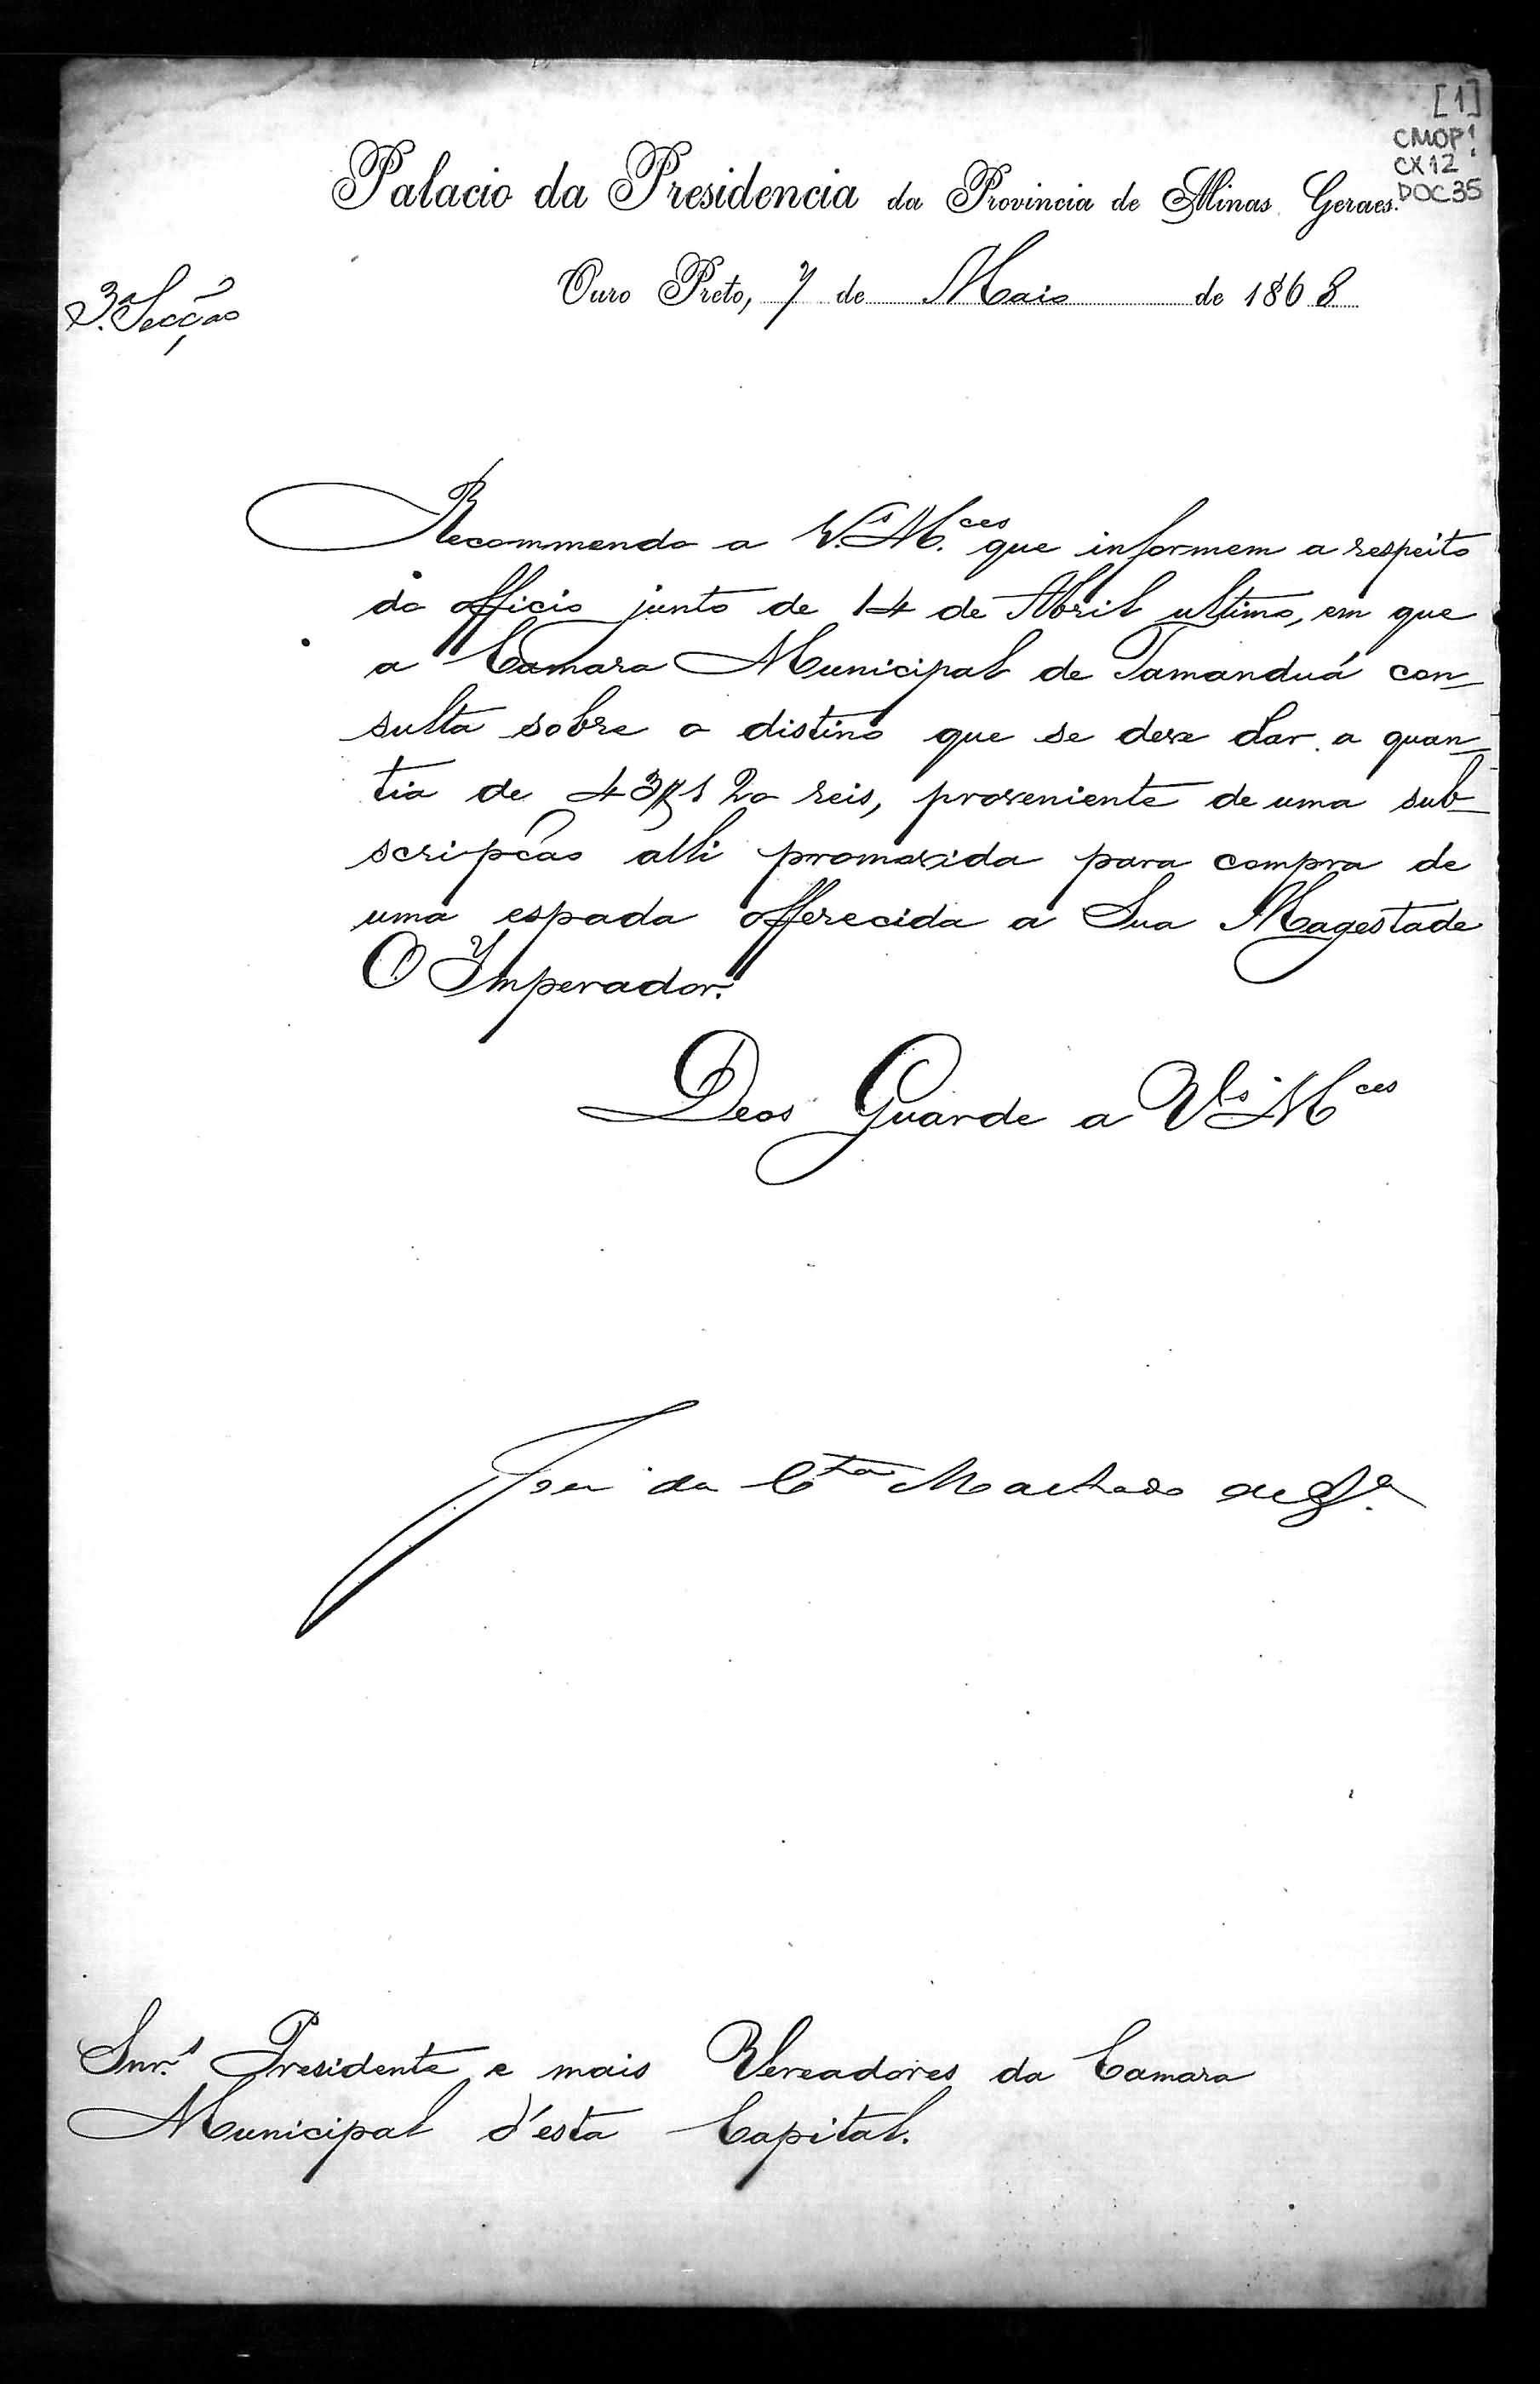 [1]
CMOP1
CX12
DOC35
Palacio da Presidencia da Provincia de Minas Geraes.
Ouro Preto, 7 de Maio de 1868
3ª Secção
Recommendo a V.s M.ces que informem a respeito
do officio junto de 14 de Abril ultimo, em que
a Camara Municipal de Tamanduá con-
sulta sobre o distino que se deve dar a quan-
tia de 43$120 reis, proveniente de uma sub-
scripção alli promovida para compra de
uma espada offerecida a Sua Magestade
O Imperador.
Deos Guarde a V.s M.ces
José da C.ta Machado de S.a
Snr.s Presidente e mais Vereadores da Camara
Municipal d'esta Capital.